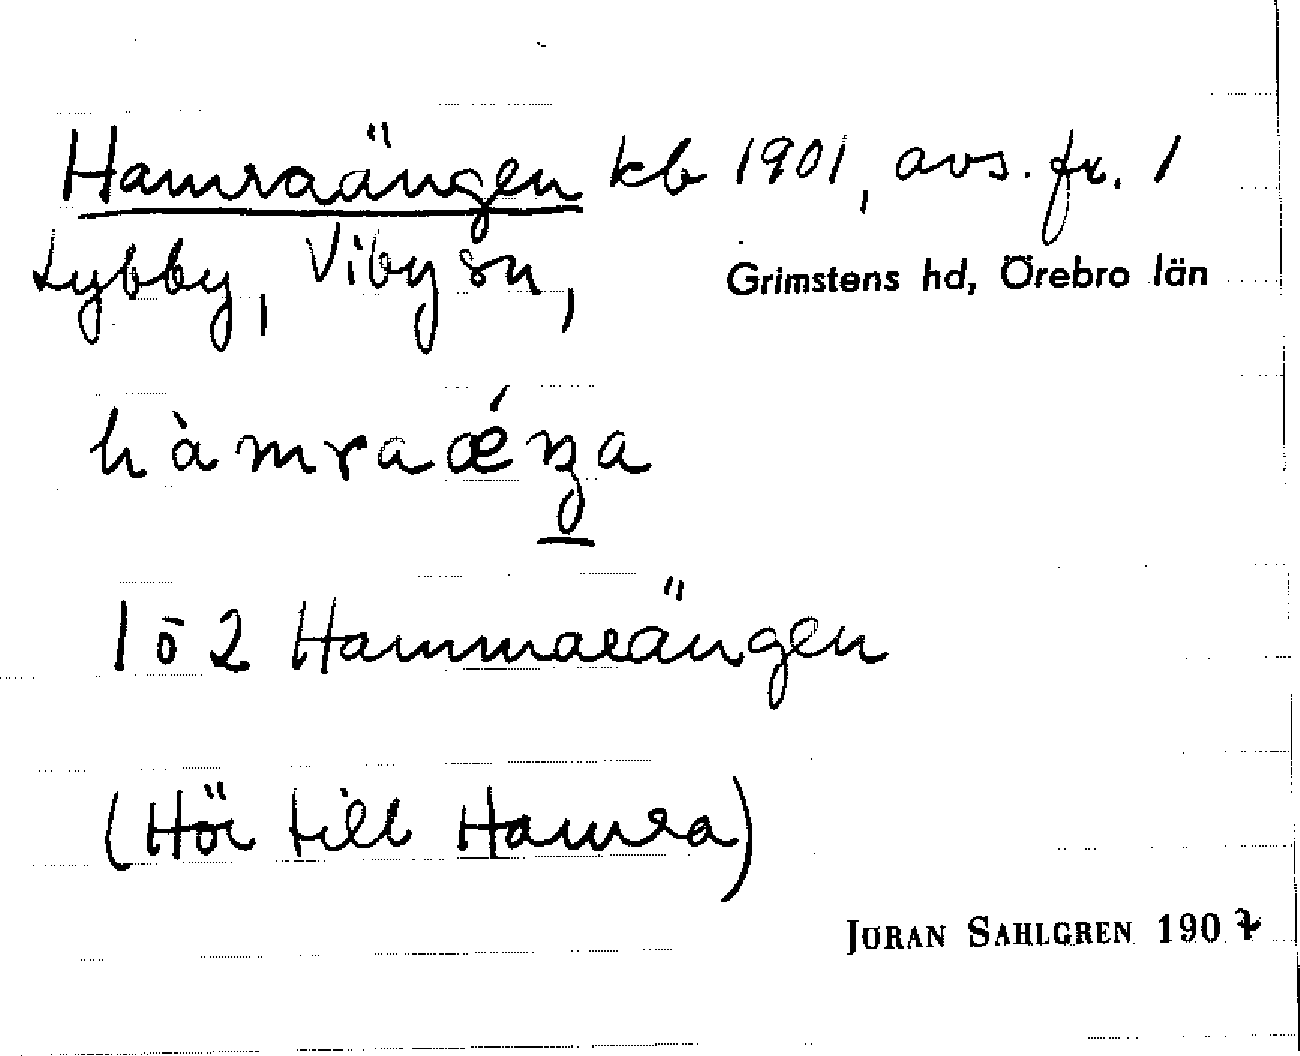 Hamraängen kb 1901, avs. fr. 1
Lybby, Viby sn,
Grimstens hd, Örebro län
hàmraǽŋa
1 o 2 Hammarängen
(Hör till Hamra)
JÖRAN SAHLGREN 1907